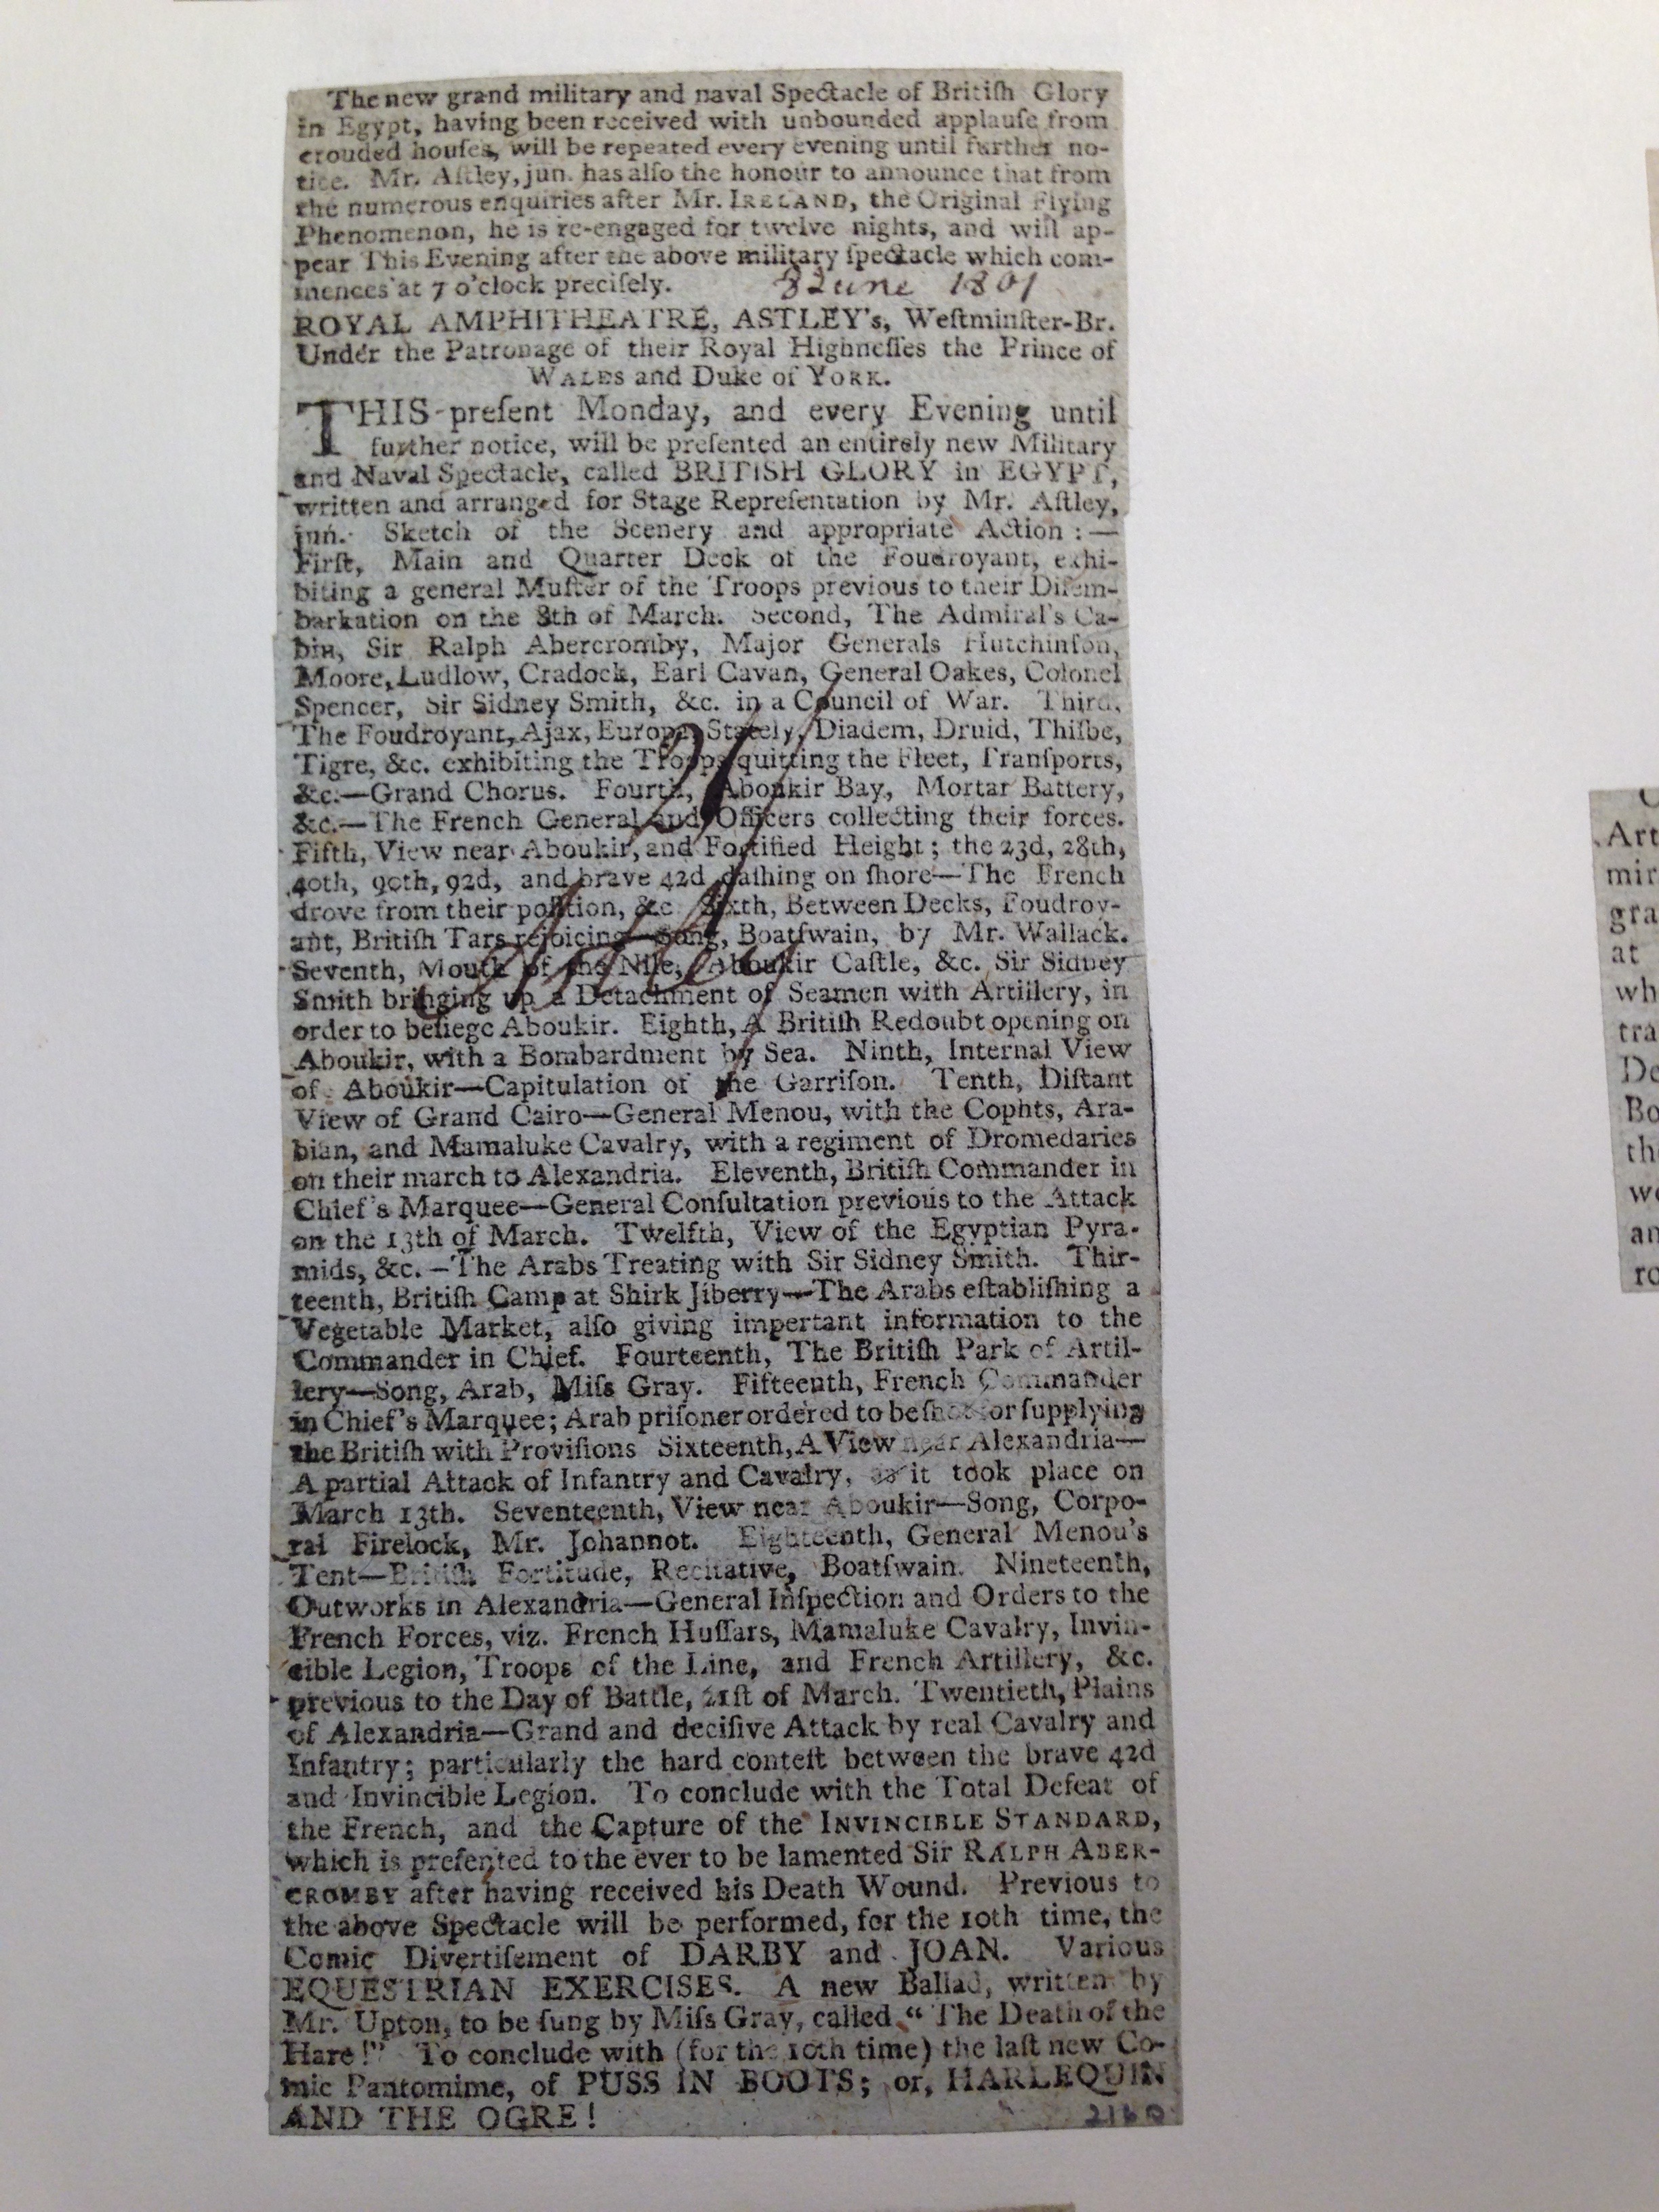 The new grand military and naval Spectacle of Britiſh Glory
in Egypt, having been received with unbounded applauſe from
crouded houſes, will be repeated every evening until further no-
tice. Mr. Aſtley, jun. has alſo the honour to announce that from
the numerous enquiries after Mr. IRELAND, the Original Flying
Phenomenon, he is re-engaged for twelve nights, and will ap-
pear This Evening after the above military ſpectacle which com-
mences at 7 o'clock preciſely. 8 June 1801
ROYAL AMPHITHEATRE, ASTLEY's, Weſtminſter-Br.
Under the Patronage of their Royal Highneſſes the Prince of
WALES and Duke of YORK.
THIS preſent Monday, and every Evening until
further notice, will be preſented an entirely new Military
and Naval Spectacle, called BRITISH GLORY in EGYPT,
written and arranged for Stage Repreſentation by Mr. Aſtley,
jun. Sketch of the Scenery and appropriate Action :—
Firſt, Main and Quarter Deck of the Foudroyant, exhi-
biting a general Muſter of the Troops previous to their Diſem-
barkation on the 8th of March. Second, The Admiral's Ca-
bin, Sir Ralph Abercromby, Major Generals Hutchinſon,
Moore, Ludlow, Cradock, Earl Cavan, General Oakes, Colonel
Spencer, Sir Sidney Smith, &c. in a Council of War. Third,
The Foudroyant, Ajax, Europa, Stately, Diadem, Druid, Thiſbe,
Tigre, &c. exhibiting the Troops quitting the Fleet, Tranſports,
&c.—Grand Chorus. Fourth, Aboukir Bay, Mortar Battery,
&c.—The French General and Officers collecting their forces.
Fifth, View near Aboukir, and Fortified Height; the 23d, 28th,
40th, 90th, 92d, and brave 42d daſhing on ſhore—The French
drove from their poſition, &c Sixth, Between Decks, Foudroy-
ant, Britiſh Tars rejoicing—Song, Boatſwain, by Mr. Wallack.
Seventh, Mouth of the Nile, Aboukir Caſtle, &c. Sir Sidney
Smith bringing up a Detachment of Seamen with Artillery, in
order to beſiege Aboukir. Eighth, A Britiſh Redoubt opening on
Aboukir, with a Bombardment by Sea. Ninth, Internal View
of Aboukir—Capitulation of the Garriſon. Tenth, Diſtant
View of Grand Cairo—General Menou, with the Cophts, Ara-
bian, and Mamaluke Cavalry, with a regiment of Dromedaries
on their march to Alexandria. Eleventh, Britiſh Commander in
Chief's Marquee—General Conſultation previous to the Attack
on the 13th of March. Twelfth, View of the Egyptian Pyra-
mids, &c.—The Arabs Treating with Sir Sidney Smith. Thir-
teenth, Britiſh Camp at Shirk Jiberry—The Arabs eſtabliſhing a
Vegetable Market, alſo giving important information to the
Commander in Chief. Fourteenth, The Britiſh Park of Artil-
lery—Song, Arab, Miſs Gray. Fifteenth, French Commander
in Chief's Marquee; Arab priſoner ordered to be ſhot for ſupplying
the Britiſh with Proviſions Sixteenth, A View near Alexandria—
A partial Attack of Infantry and Cavalry, as it took place on
March 13th. Seventeenth, View near Aboukir—Song, Corpo-
ral Firelock, Mr. Johannot. Eighteenth, General Menou's
Tent—Britiſh Fortitude, Recitative, Boatſwain. Nineteenth,
Outworks in Alexandria—General Inſpection and Orders to the
French Forces, viz. French Huſſars, Mamaluke Cavalry, Invin-
cible Legion, Troops of the Line, and French Artillery, &c.
previous to the Day of Battle, 21ſt of March. Twentieth, Plains
of Alexandria—Grand and deciſive Attack by real Cavalry and
Infantry; particularly the hard conteſt between the brave 42d
and Invincible Legion. To conclude with the Total Defeat of
the French, and the Capture of the INVINCIBLE STANDARD,
which is preſented to the ever to be lamented Sir RALPH ABER-
CROMBY after having received his Death Wound. Previous to
the above Spectacle will be performed, for the 10th time, the
Comic Divertiſement of DARBY and JOAN. Various
EQUESTRIAN EXERCISES. A new Ballad, written by
Mr. Upton, to be ſung by Miſs Gray, called "The Death of the
Hare!" To conclude with (for the 10th time) the laſt new Co-
mic Pantomime, of PUSS IN BOOTS; or, HARLEQUIN
AND THE OGRE! 2160
Art
mir
gra
at
wh
tra
De
Bo
th
we
an
ro